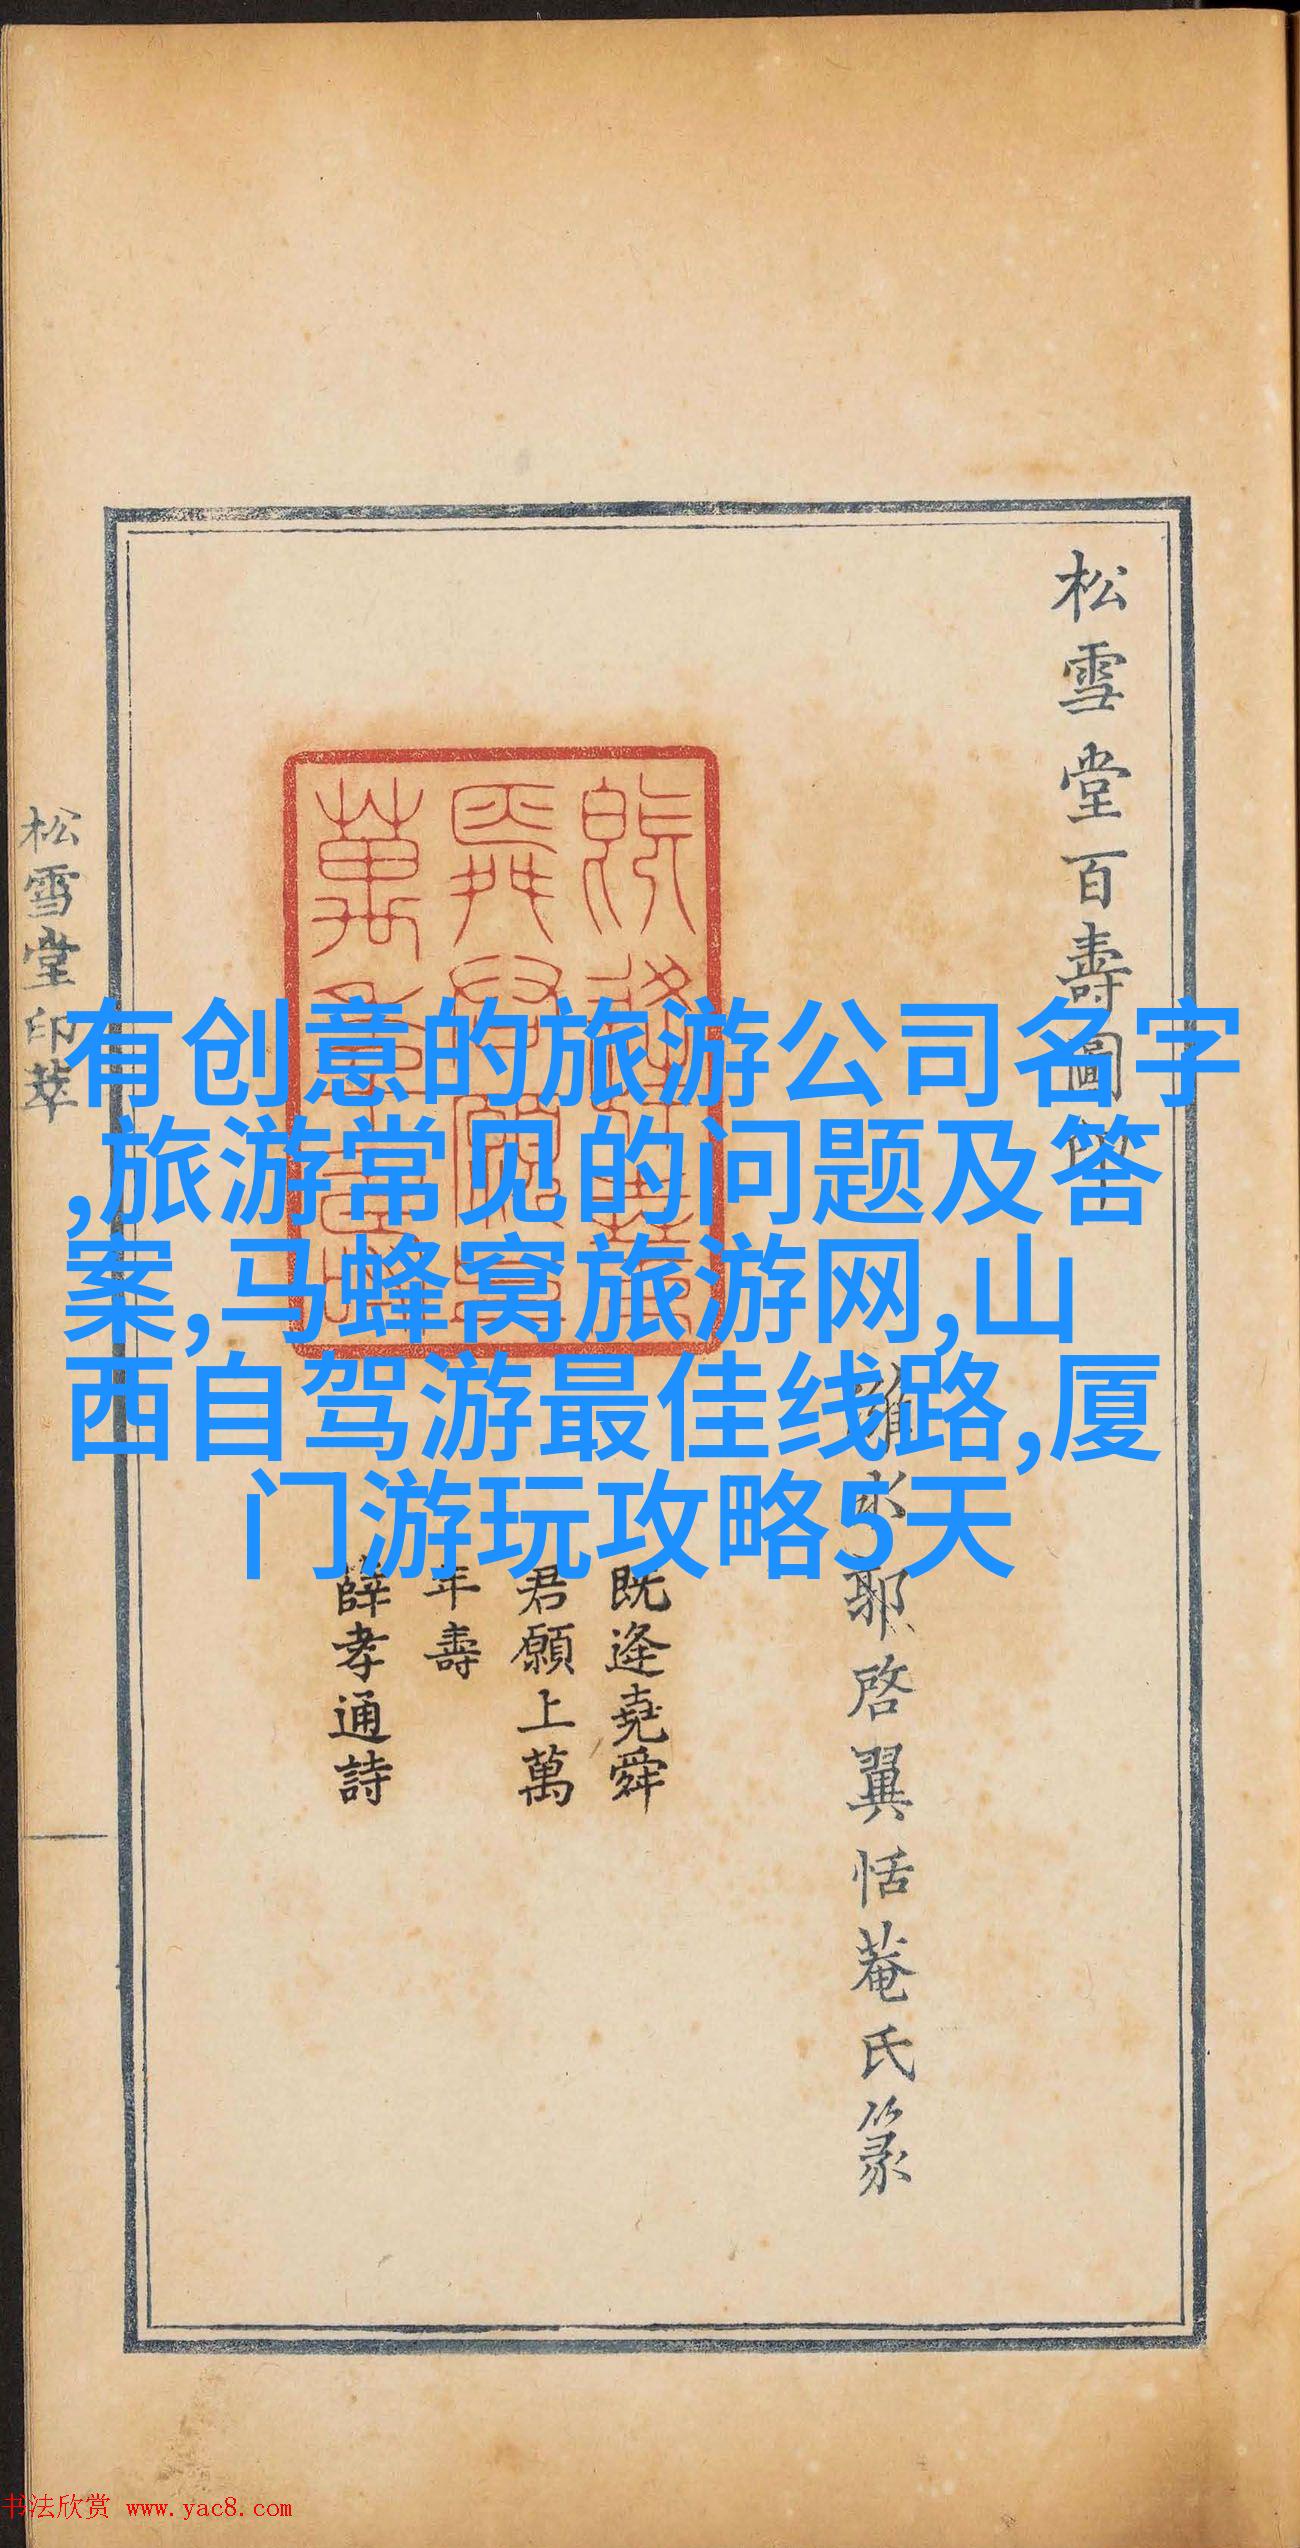 松雪堂百壽圖印
耶啓翼恬菴氏篆
既逢堯舜
君願上萬
年壽
薛孝通詩
松雪堂印萃
有创意的旅游公司名字
,旅游常见的问题及答
案,马蜂窝旅游网,山
西自驾游最佳线路,厦
门游玩攻略5天
书法欣赏 www.yac8.com